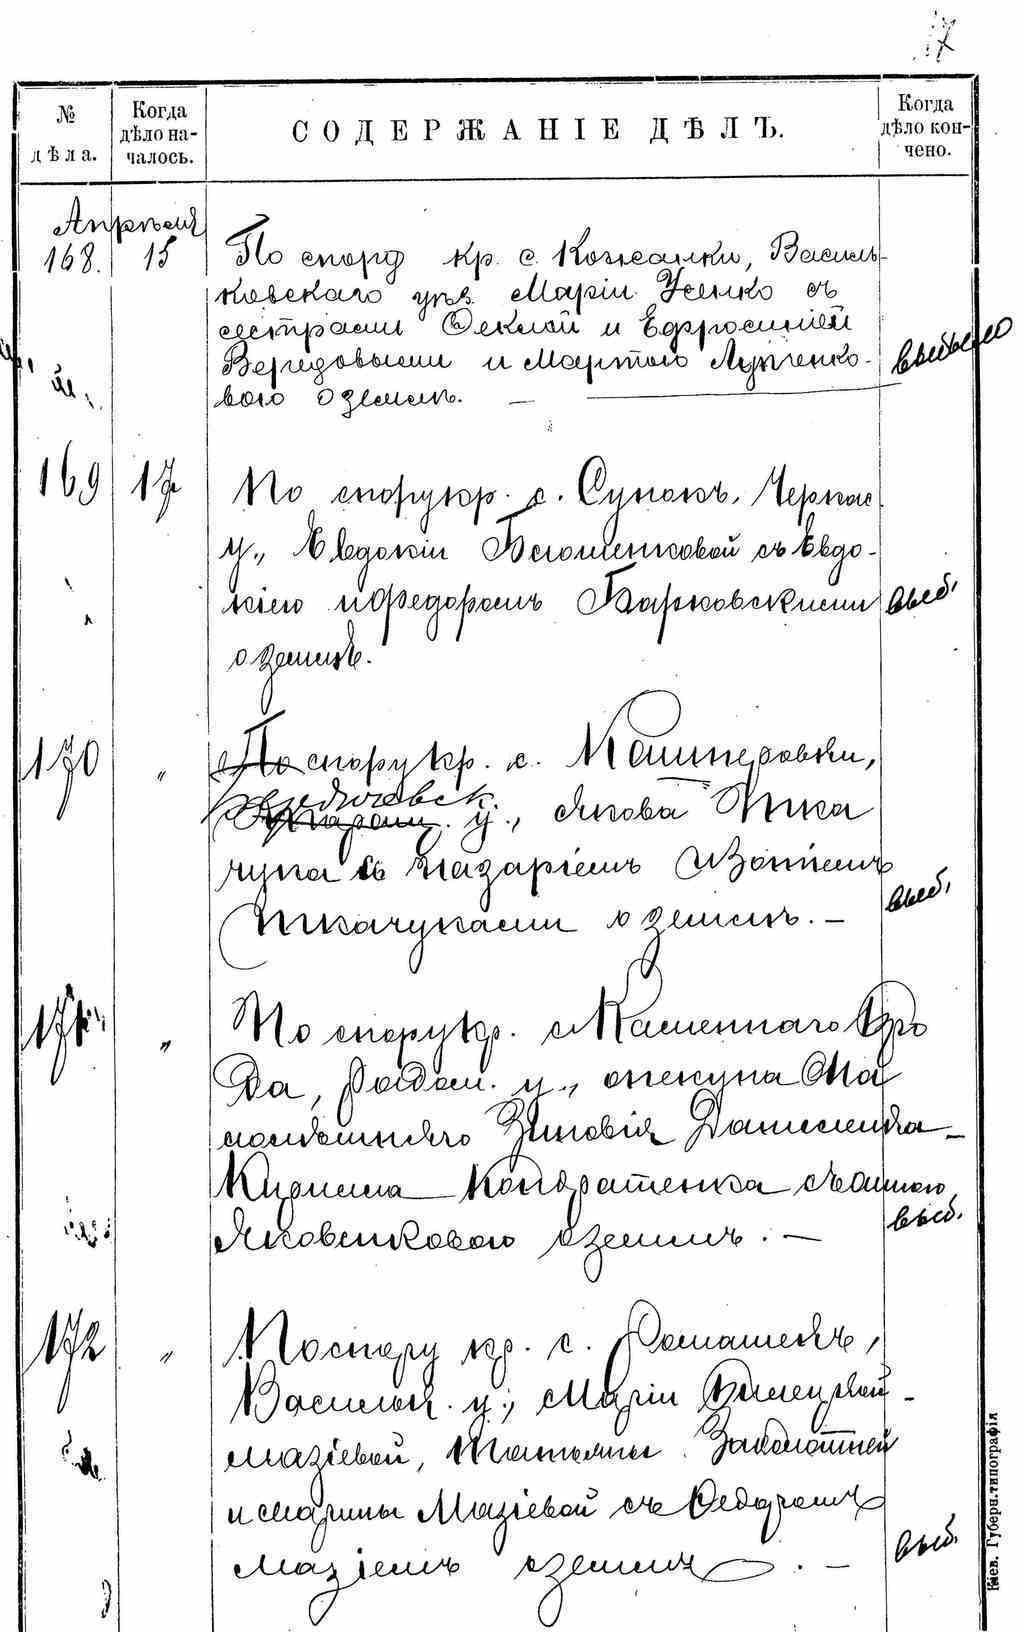 17
№ дѣла.
Когда дѣло началось.
СОДЕРЖАНІЕ ДѢЛЪ.
Когда дѣло кончено.
Апрѣля
168. 15 По спору кр. с. Кожанки, Василь-
ковскаго уѣз. Маріи Усенко съ
сестрами Ѳеклой и Ефросиніей
и Мартою Лупченко-
вою о землѣ. — выбыло
169 17 По спору кр. с. Сунокъ, Черкас.
у., Евдокіи съ Евдо-
кіею и Федоромъ Барковскими выб.
о землѣ.
170 " По спору кр. с. Кашперовки,
Бердичевск.
у., Якова Тка
чука съ Назаріемъ Изотіемъ
Ткачуками о землѣ. — выб.
171 " По спору кр. с. Каменнаго Бро
да, Радом. у., опекуна Ма
лолѣтняго Зиновія
Кирилла Кондратенка съ Анною
Яковенковою о землѣ. — выб.
172 " По спору кр. с. Ромашекъ,
Васильк. у., Маріи
Мазіевой, Татьяны Заболотней
и Марины Мазіевой съ Ѳедоромъ
Мазіемъ о землѣ. — выб.
Кіев. Губерн. типографія